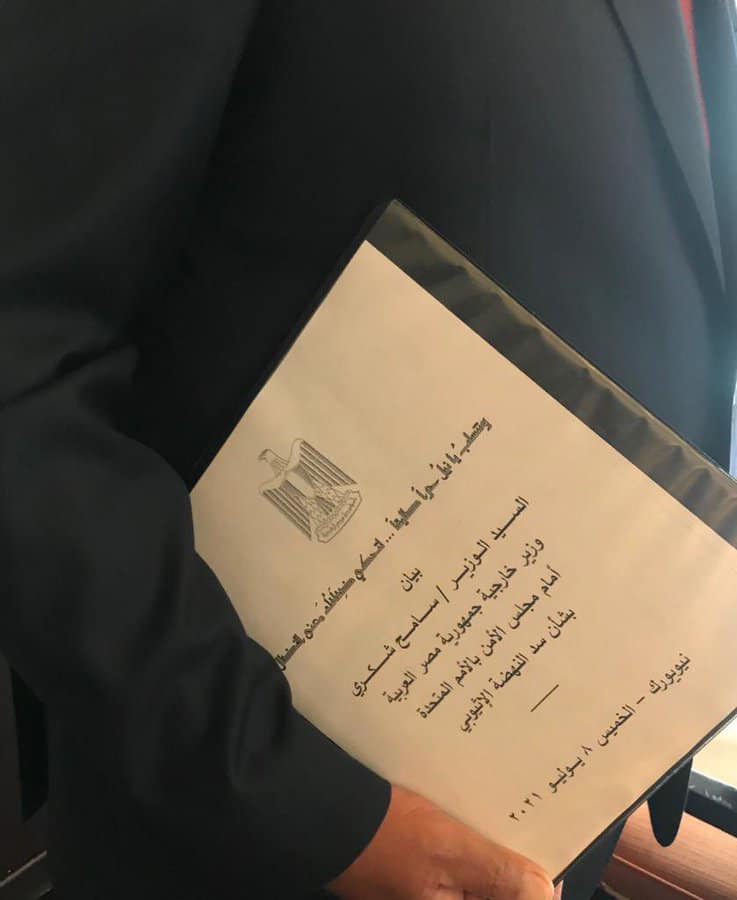 نيلُ حراً طليقاً ... لتحكي ضفافُكَ معنى النضال
بيان
السيد الوزير / سامح شكري
وزير خارجية جمهورية مصر العربية
أمام مجلس الأمن بالأمم المتحدة
بشأن سد النهضة الإثيوبي
نيويورك - الخميس ٨ يوليو ٢٠٢١